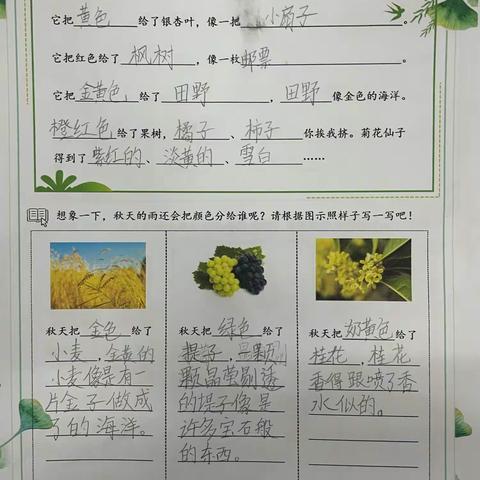 它把黄色给了银杏叶，像一把小扇子。
它把红色给了枫树，像一枚邮票。
它把金黄色给了田野，田野像金色的海洋。
橙红色给了果树，橘子、柿子你挨我挤。菊花仙子
得到了紫红的、淡黄的、雪白……
想象一下，秋天的雨还会把颜色分给谁呢？请根据图示照样子写一写吧！
秋天把金色给了
小麦，金黄的
小麦像是有一
片金子做成
了的海洋。
秋天把绿色给了
提子，一颗
颗晶莹剔透
的提子像是
许多宝石般
的东西。
秋天把奶黄色给了
桂花，桂花
香得跟喷了香
水似的。